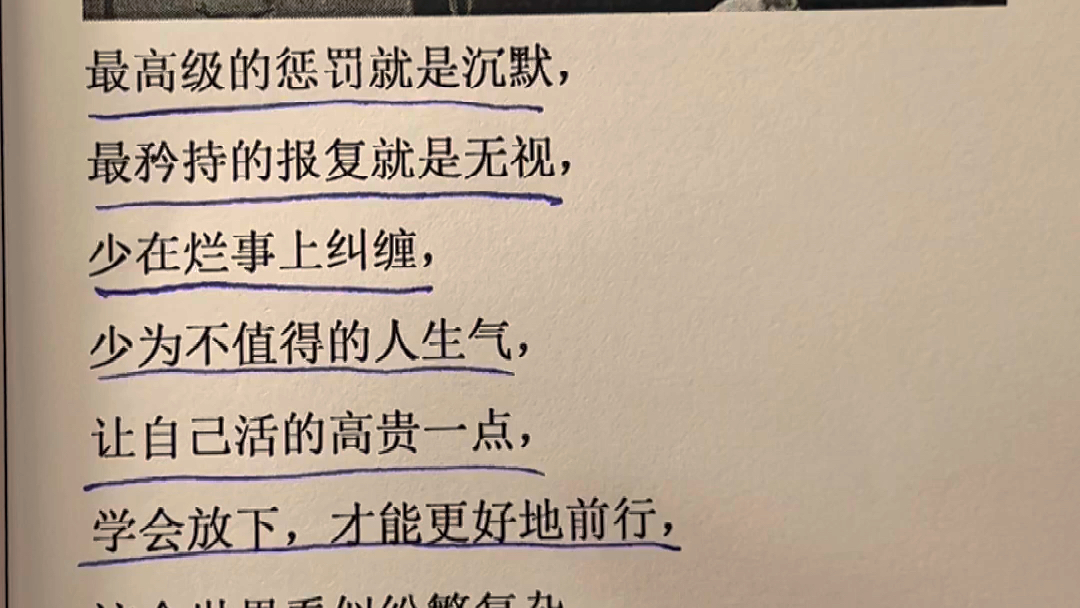 最高级的惩罚就是沉默，
最矜持的报复就是无视，
少在烂事上纠缠，
少为不值得的人生气，
让自己活的高贵一点，
学会放下，才能更好地前行，
这个世界看似纷繁复杂